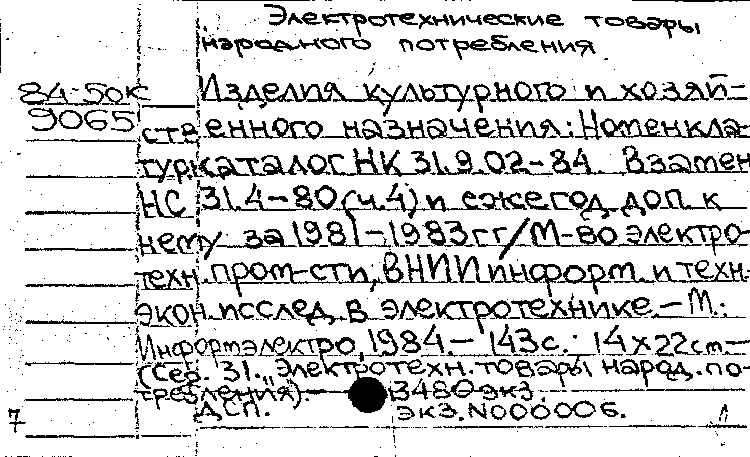 Электротехнические товары
народного потребления
84-50к
9065
Изделия культурного и хозяй-
ственного назначения: Номенкла-
тур. каталог НК 31.9.02-84. Взамен
НС 31.4-80 (ч.4) и ежегод. доп. к
нему за 1981-1983гг/М-во электро-
техн. пром-сти, ВНИИ информ. и техн.-
экон. исслед. в электротехнике.-М.:
Информэлектро, 1984.- 143с.; 14х22см.-
(Сер. 31. "Электротехн. товары народ. по-
требления).- 3480 экз.
ДСП. экз.N000006.
7